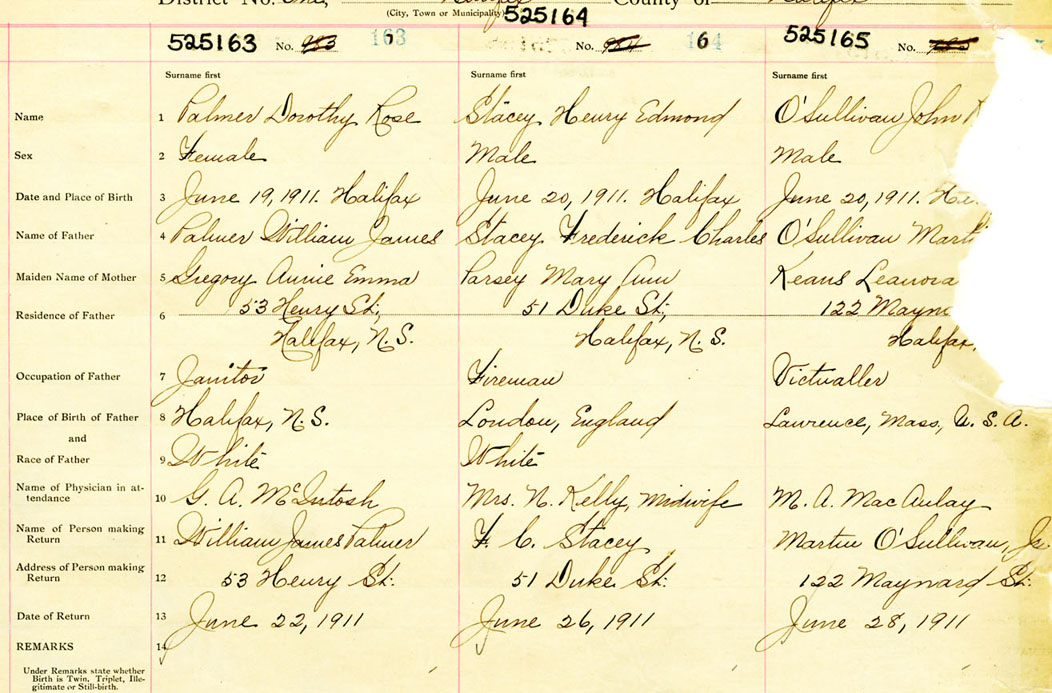 District No. One,
County of Halifax
(City, Town or Municipality)
525163 No. 983 163
525164 No. 984 164 6
525165 No. 985
Surname first Surname first Surname first
Name 1 Palmer Dorothy Rose Stacey Henry Edmond O'Sullivan John
Sex 2 Female Male Male
Date and Place of Birth 3 June 19, 1911. Halifax June 20, 1911. Halifax June 20, 1911. Ha
Name of Father 4 Palmer William James Stacey Frederick Charles O'Sullivan Marti
Maiden Name of Mother 5 Gregory Annie Emma Parsey Mary Ann Keans Leanora
Residence of Father 6 53 Henry St., 51 Duke St., 122 Mayn
Halifax, N.S. Halifax, N.S. Halifax,
Occupation of Father 7 Janitor Fireman Victualler
Place of Birth of Father 8 Halifax, N.S. London, England Lawrence, Mass, U.S.A.
and
Race of Father 9 White White
Name of Physician in at-
tendance 10 G. A. McIntosh Mrs. N. Kelly, Midwife M. A. MacAulay
Name of Person making
Return 11 William James Palmer F. C. Stacey Martin O'Sullivan, Jr
Address of Person making
Return 12 53 Henry St. 51 Duke St. 122 Maynard St.
Date of Return 13 June 22, 1911 June 26, 1911 June 28, 1911
REMARKS 14
Under Remarks state whether
Birth is Twin, Triplet, Ille-
gitimate or Still-birth.